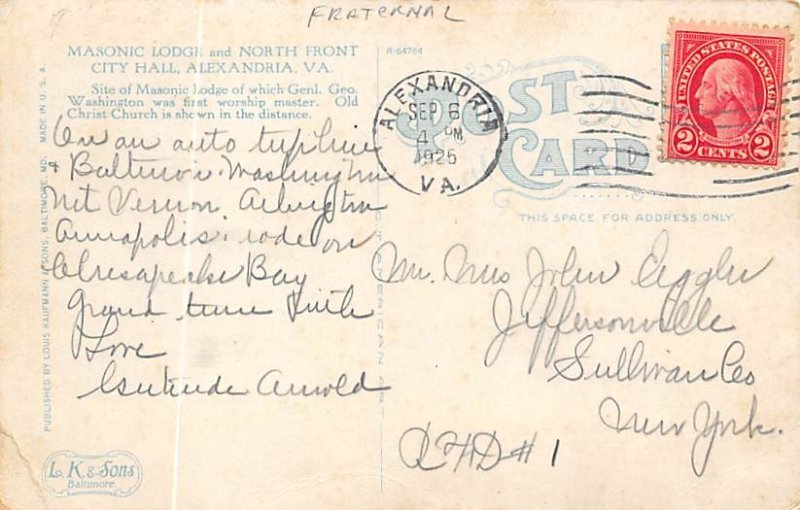 FRATERNAL
MASONIC LODGE and NORTH FRONT
CITY HALL, ALEXANDRIA, VA.
Site of Masonic Lodge of which Genl. Geo.
Washington was first worship master. Old
Christ Church is shown in the distance.
On an auto trip
& Baltimore Washington
Mt Vernon Arlington
Annapolis rode on
Chesapeake Bay
grand time With
Love
Gertrude Arnold
R-64764
POST
CARD
ALEXANDRIA
SEP 6
4 PM
1925
VA.
UNITED STATES POSTAGE
WASHINGTON
2 CENTS 2
THIS SPACE FOR ADDRESS ONLY.
Mr. Mrs John
Jeffersonville
Sullivan Co
New York.
RFD #1
PUBLISHED BY LOUIS KAUFMANN & SONS, BALTIMORE, MD. MADE IN U. S. A.
L. K. & Sons
Baltimore